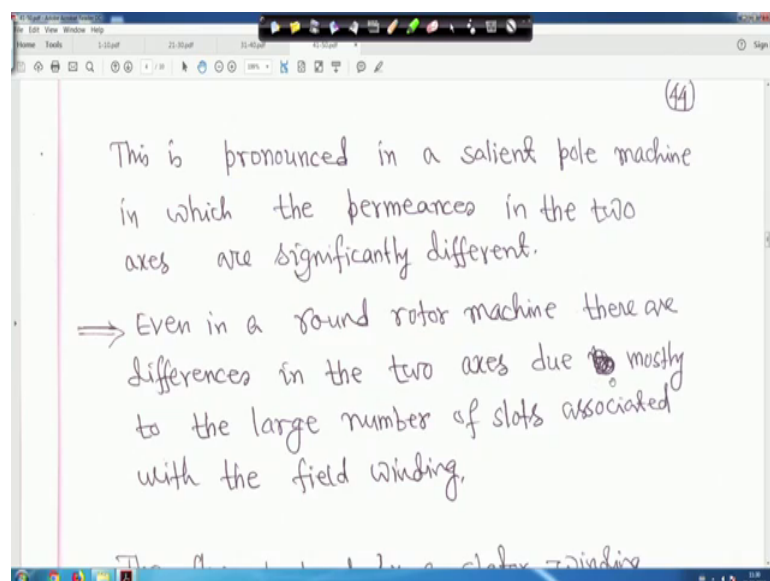 File Edit View Window Help
Home Tools 1-10.pdf 21-30.pdf 31-40.pdf 41-50.pdf × Sign
(44)
This is pronounced in a salient pole machine
in which the permeances in the two
axes are significantly different.
⟹ Even in a round rotor machine there are
differences in the two axes due mostly
to the large number of slots associated
with the field winding.
stator winding